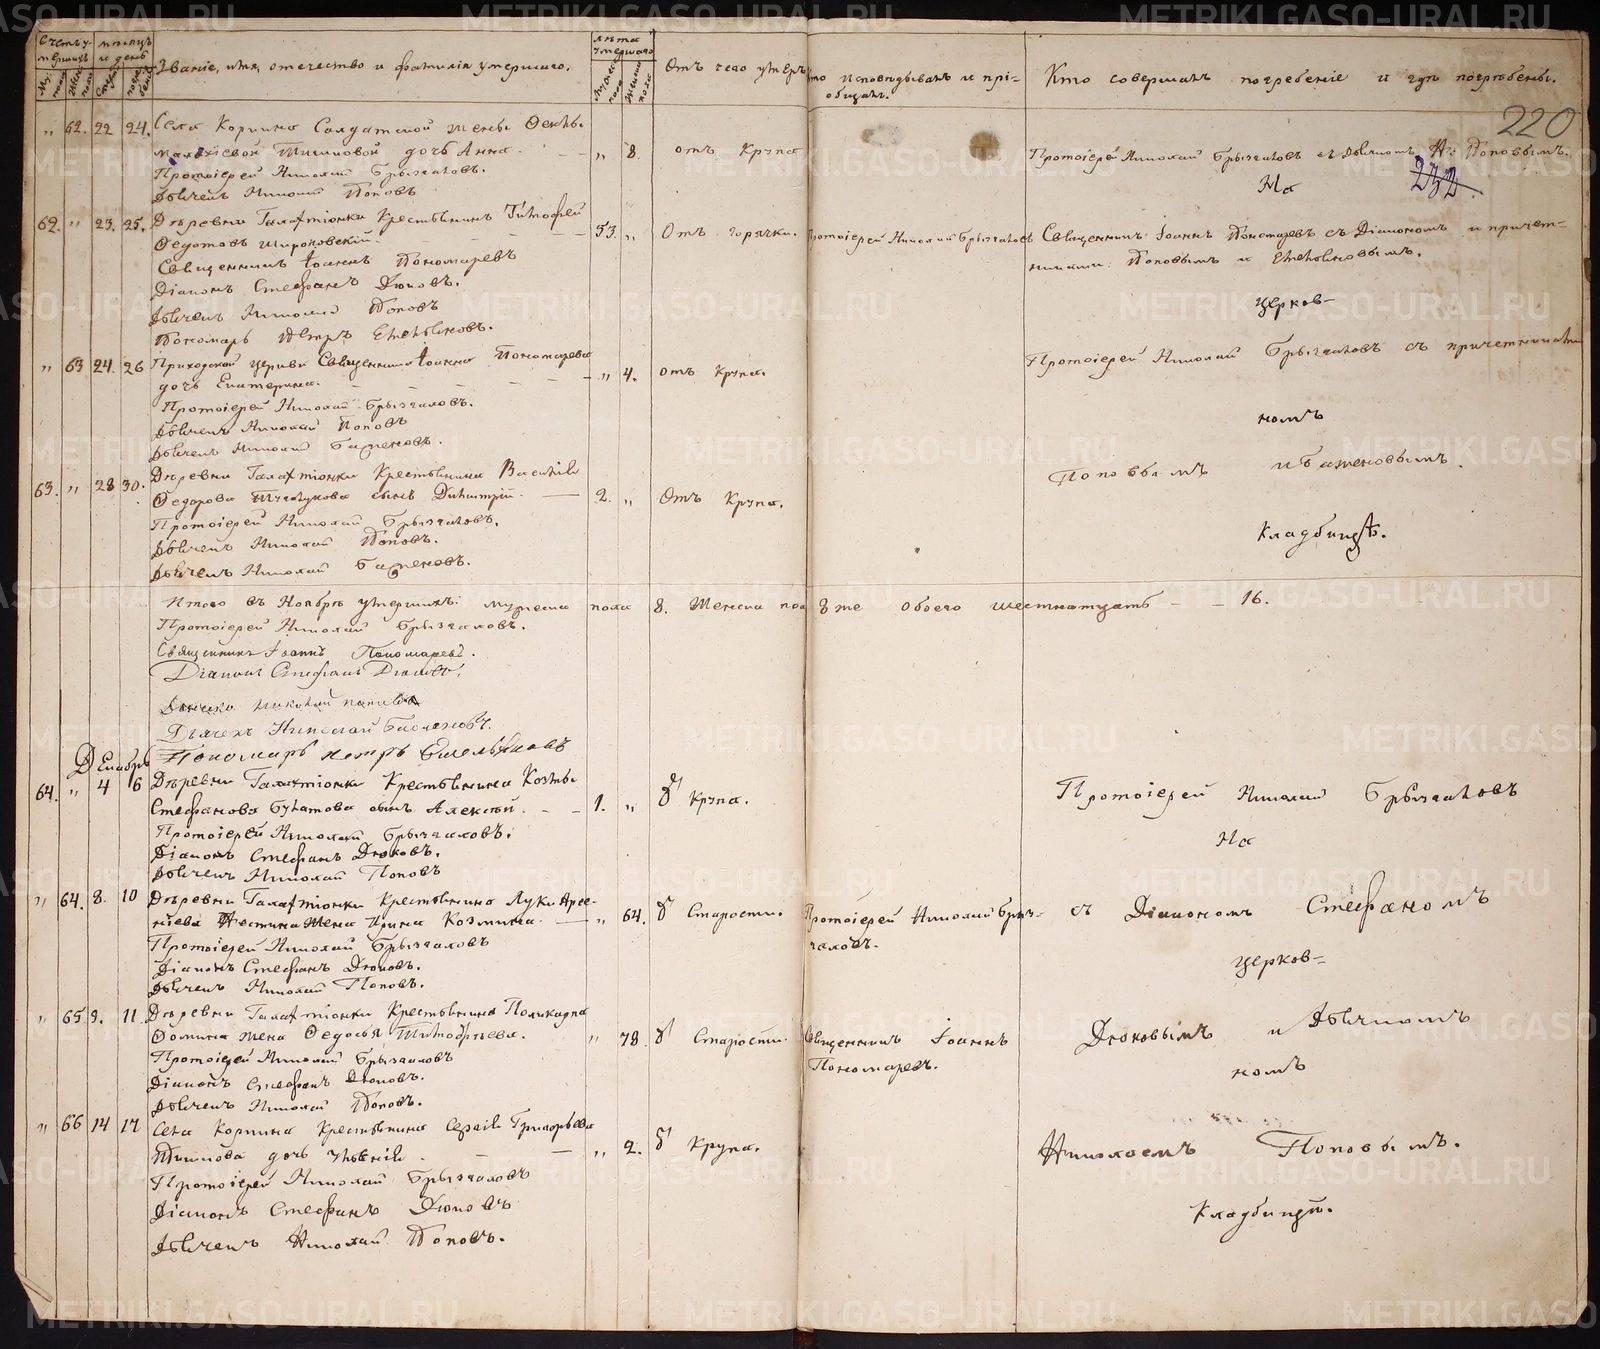 Счетъ умершихъ
Муж. пола
Женск. пола
мѣсяцъ и день
Смерти
погребенія
Званіе, имя, отечество и фамилія умершаго.
Лѣта умершаго
Мужеска пола
Женска пола
Отъ чего умеръ
Кто исповѣдывалъ и прі-
общалъ.
Кто совершалъ погребеніе и гдѣ погребены.
220
232
„ 62. 22 24. Села Коркина Солдатской жены Феклы
дочь Анна. „ 8. отъ Крупа
Протоіерей Николай Брызгаловъ.
Дьячекъ Николай Поповъ
Протоіерей Николай Брызгаловъ съ дьячкомъ Н: Поповымъ.
На
62. „ 23. 25. Деревни Галактіонки Крестьянинъ Тимофей
Федотовъ Широковскій. 53. „ Отъ горячки. Протоіерей Николай Брызгаловъ
Священникъ Іоаннъ Пономаревъ
Діаконъ Стефанъ Дюковъ.
Дьячекъ Николай Поповъ
Пономарь Петръ Емельяновъ.
Священникъ Іоаннъ Пономаревъ съ Діакономъ и причет-
никами: Поповымъ и Емельяновымъ.
церков-
„ 63 24. 26 Приходской церкви Священника Іоанна Пономарева
дочь Екатерина. „ 4. отъ Крупа.
Протоіерей Николай Брызгаловъ.
Дьячекъ Николай Поповъ
Дьячекъ Николай Баженовъ.
Протоіерей Николай Брызгаловъ съ причетниками
номъ
63. „ 28 30. Деревни Галактіонки Крестьянина Василія
Федорова сынъ Димитрій. 2. „ Отъ Крупа.
Протоіерей Николай Брызгаловъ.
Дьячекъ Николай Поповъ.
Дьячекъ Николай Баженовъ.
Поповымъ и Баженовымъ.
Кладбищѣ.
Итого въ Ноябрѣ умершихъ: мужеска пола 8. Женска пола 8 же Обоего шестнатцать – – 16.
Протоіерей Николай Брызгаловъ.
Священникъ Іоаннъ Пономаревъ.
Діаконъ Стефанъ Дюковъ.
Дьячекъ Николай Поповъ
Дьячекъ Николай Баженовъ.
Пономарь Петръ Емельяновъ
Декабрь
64. „ 4 6 Деревни Галактіонки Крестьянина Козмы
Стефанова Булатова сынъ Алексѣй. 1. „ Крупа.
Протоіерей Николай Брызгаловъ.
Діаконъ Стефанъ Дюковъ.
Дьячекъ Николай Поповъ
Протоіерей Николай Брызгаловъ
На
„ 64. 8. 10 Деревни Галактіонки Крестьянина Луки Арсе-
ніева жена Ирина Козмина. „ 64. Старости. Протоіерей Николай Брыз-
галовъ.
Протоіерей Николай Брызгаловъ
Діаконъ Стефанъ Дюковъ.
Дьячекъ Николай Поповъ.
съ Діакономъ Стефаномъ
церков-
„ 65 9. 11. Деревни Галактіонки Крестьянина Поликарпа
Фомина жена Федосья Тимофѣева. „ 78. Старости. Священникъ Іоаннъ
Пономаревъ.
Протоіерей Николай Брызгаловъ
Діаконъ Стефанъ Дюковъ.
Дьячекъ Николай Поповъ.
Дюковымъ и Дьячкомъ
номъ
„ 66 14 17 Села Коркина Крестьянина Сергія Григорьева
дочь „ 2. Крупа.
Протоіерей Николай Брызгаловъ
Діаконъ Стефанъ Дюковъ
Дьячекъ Николай Поповъ.
Николаемъ Поповымъ.
Кладбищѣ.
METRIKI.GASO-URAL.RU